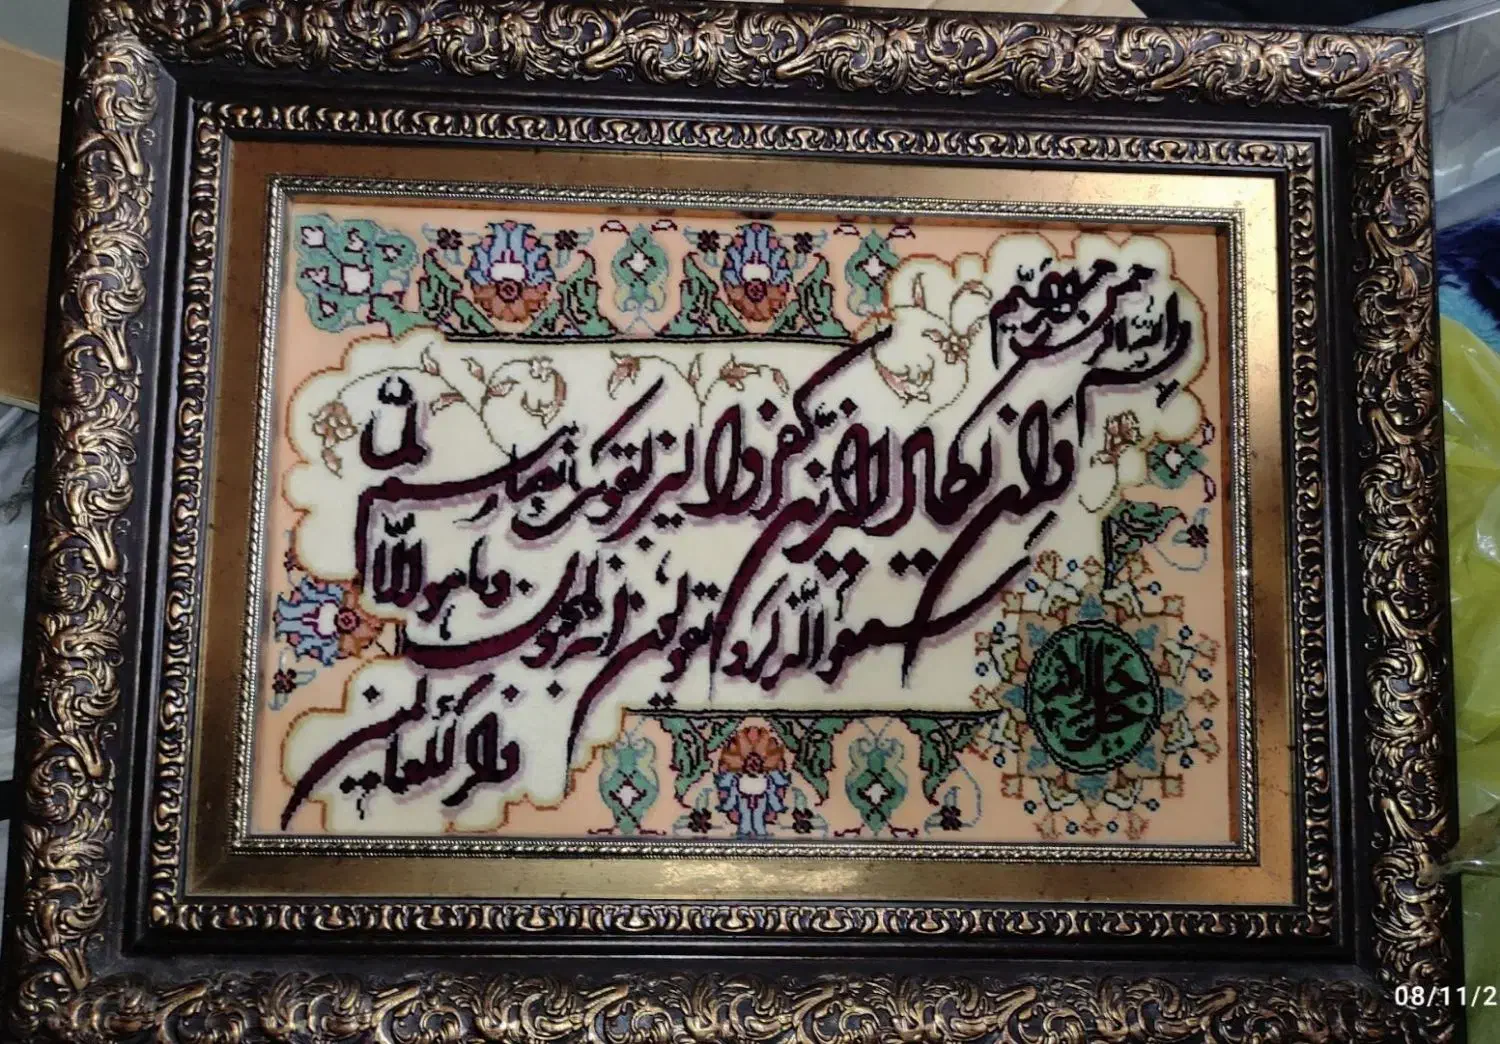 بسم الله الرحمن الرحیم
وَإِن یکاد الذین کفروا لیزلقونک بأبصارهم لمّا
سمعوا الذکر و یقولون إنه لمجنون و ما هو إلّا
ذکر للعالمین
جل جلاله
08/11/2